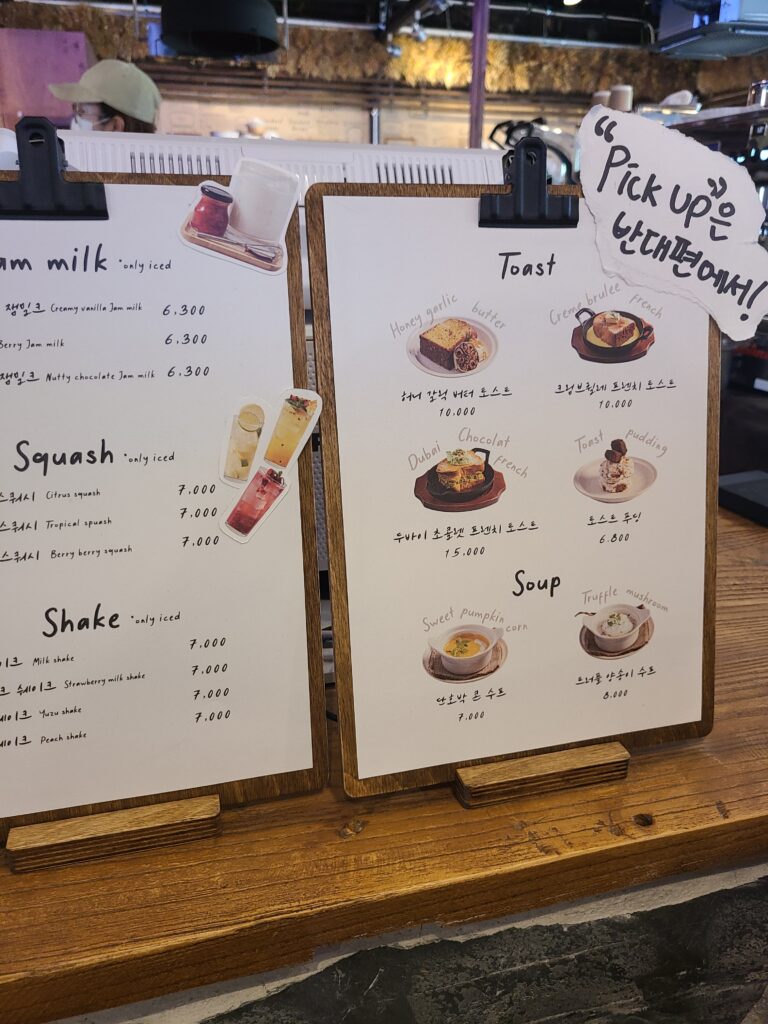 am milk *only iced
잼밀크 Creamy vanilla Jam milk 6.300
Berry Jam milk 6.300
잼밀크 Nutty chocolate Jam milk 6.300
Squash *only iced
스쿼시 Citrus squash 7.000
스쿼시 Tropical squash 7.000
스쿼시 Berry berry squash 7.000
Shake *only iced
이크 Milk shake 7.000
크 쉐이크 Strawberry milk shake 7.000
쉐이크 Yuzu shake 7.000
쉐이크 Peach shake 7.000
"Pick up"은
반대편에서!
Toast
Honey garlic butter
허니 갈릭 버터 토스트
10.000
Creme brulee french
크림브륄레 프렌치 토스트
10.000
Dubai Chocolat french
두바이 초콜렛 프렌치 토스트
15.000
Toast pudding
토스트 푸딩
6.800
Soup
Sweet pumpkin corn
단호박 콘 수프
7.000
Truffle mushroom
트러플 양송이 수프
8.000